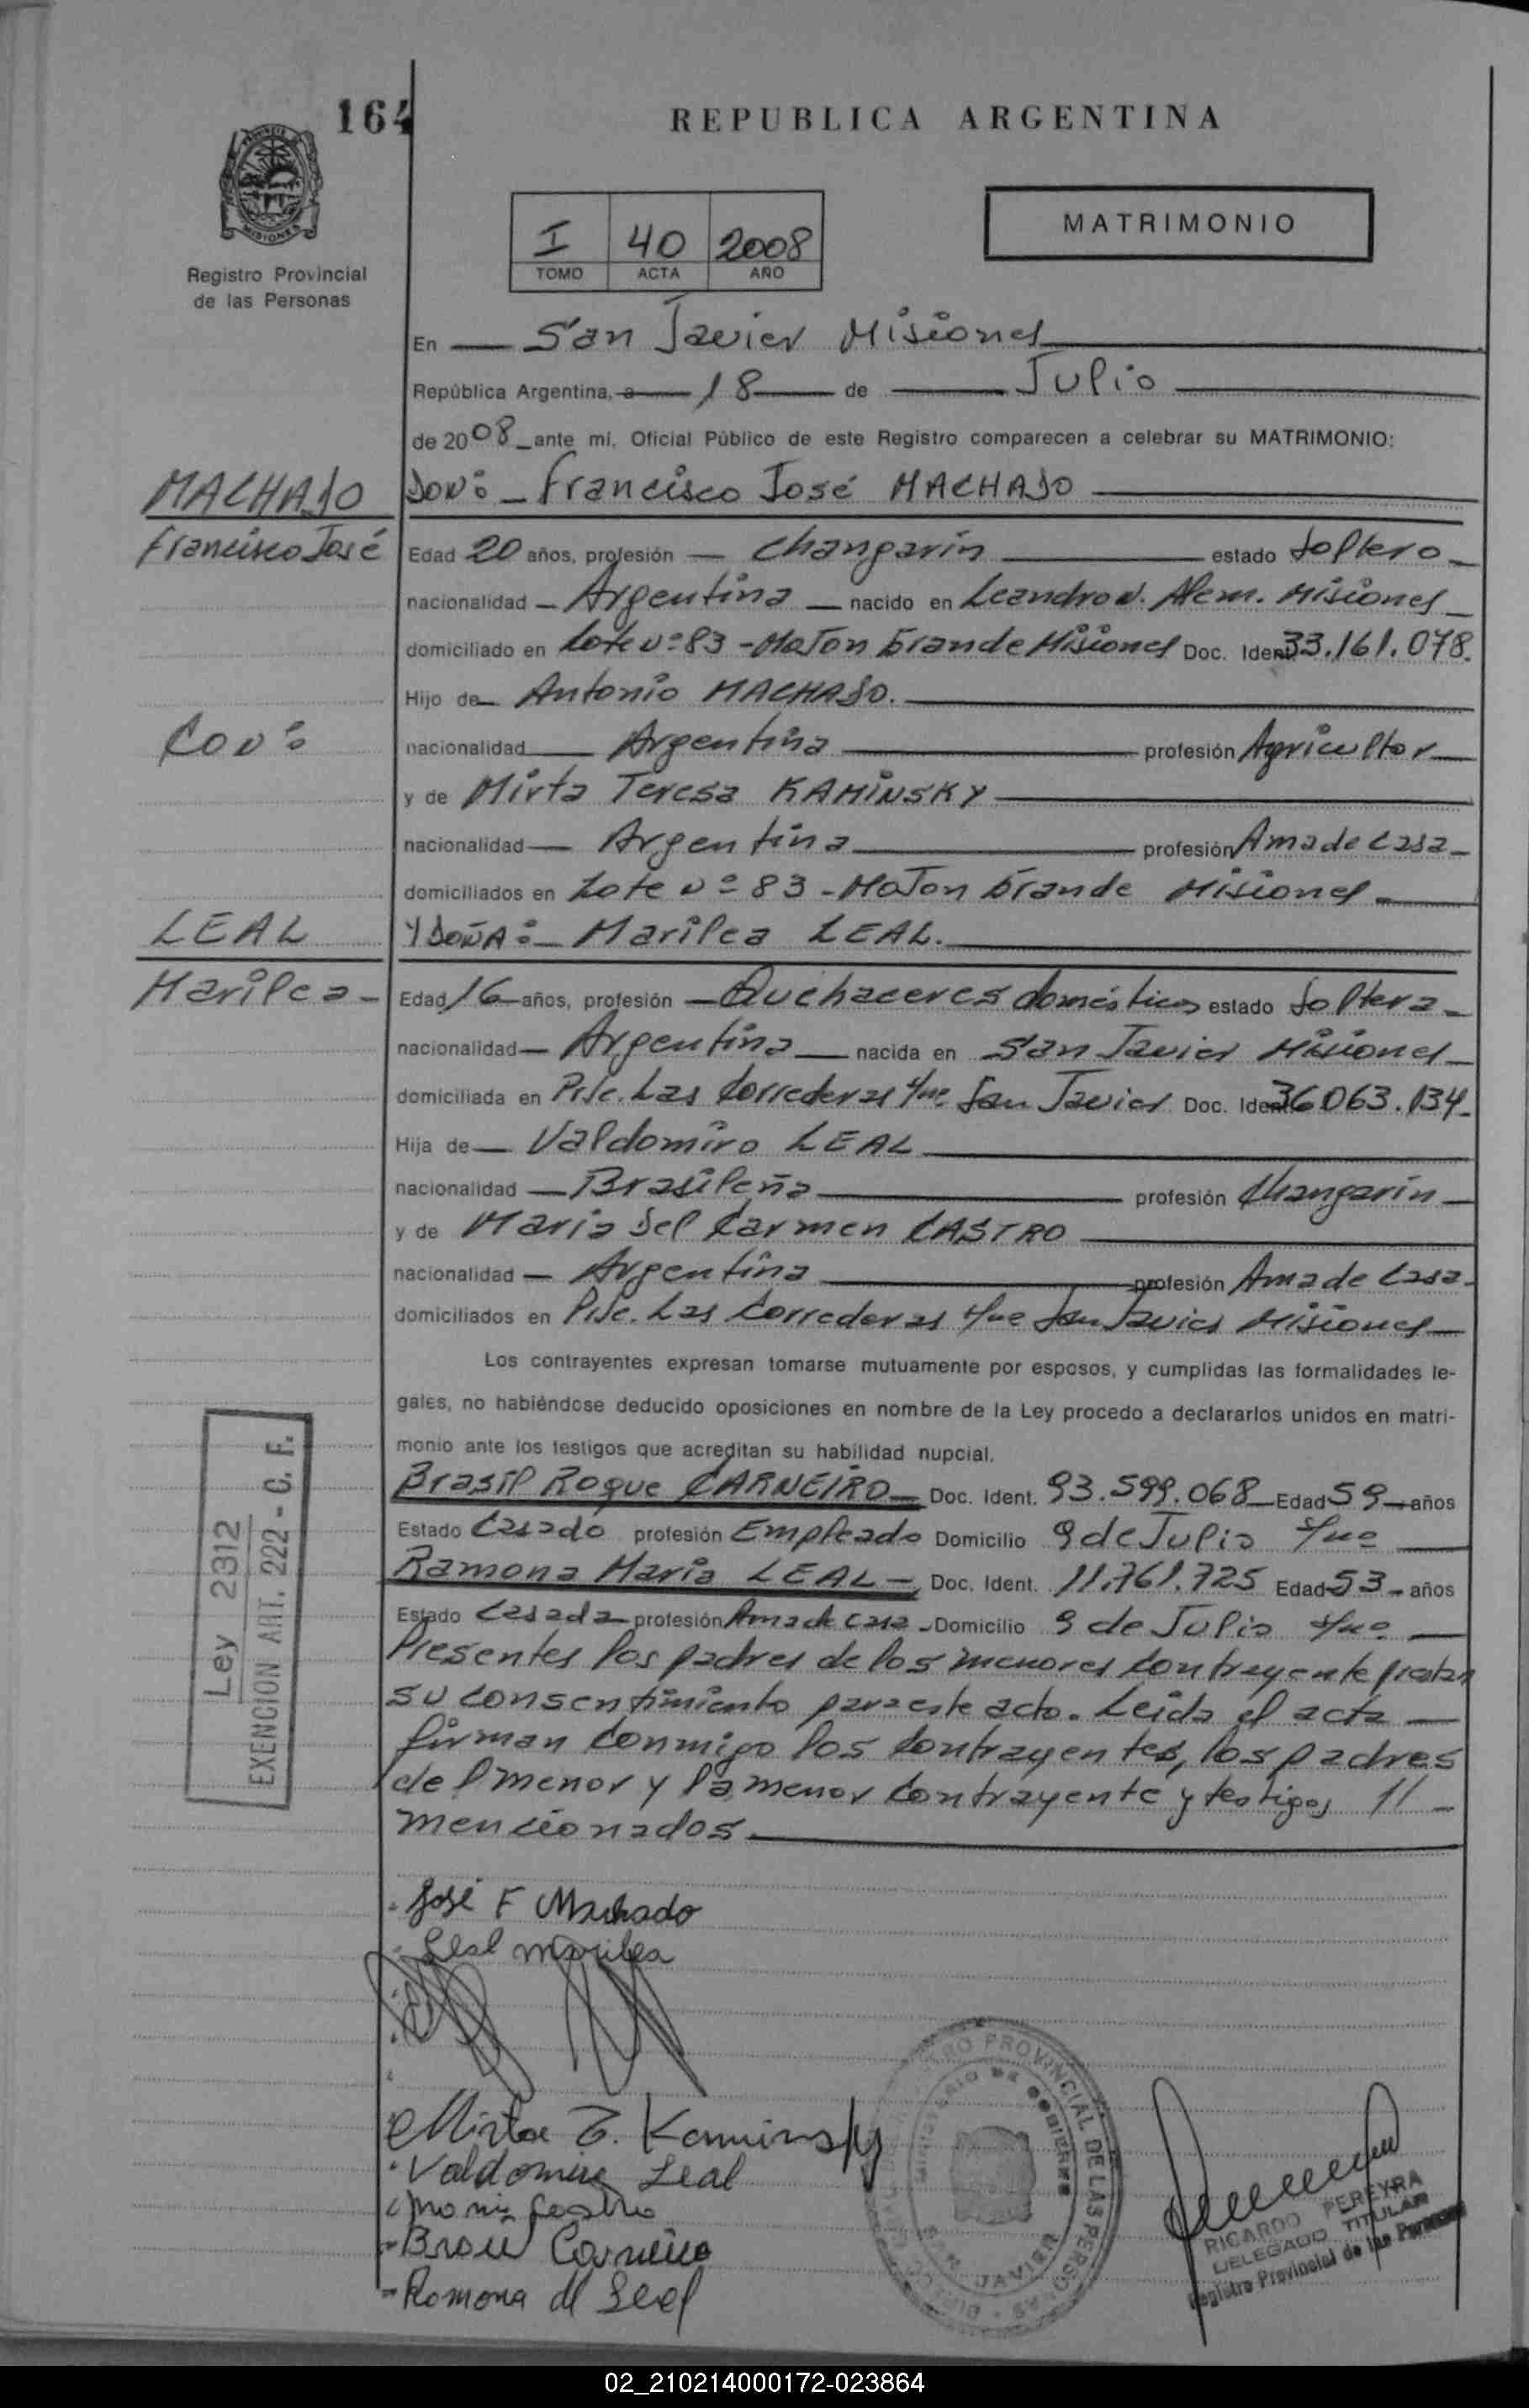 164
REPUBLICA ARGENTINA
MISIONES
Registro Provincial
de las Personas
I 40 2008
TOMO ACTA AÑO
MATRIMONIO
En San Javier Misiones
República Argentina, a 18 de Julio
de 2008 ante mi, Oficial Público de este Registro comparecen a celebrar su MATRIMONIO:
MACHADO
DON: Francisco José MACHADO
Francisco José
Edad 20 años, profesión Changarín estado Soltero
nacionalidad Argentina nacido en Leandro N. Alem. Misiones
domiciliado en Lote Nº 83 - Mojon Grande Misiones Doc. Ident. 33.161.078.
Hijo de Antonio MACHADO.
CON:
nacionalidad Argentina profesión Agricultor
y de Mirta Teresa KAMINSKY
nacionalidad Argentina profesión Ama de Casa
domiciliados en Lote Nº 83 - Mojon Grande Misiones
LEAL
Y DOÑA: Marilea LEAL.
Marilea
Edad 16 años, profesión Quehaceres domésticos estado Soltera
nacionalidad Argentina nacida en San Javier Misiones
domiciliada en Pje. Las Correderas San Javier Doc. Ident. 36063.134
Hija de Valdomiro LEAL
nacionalidad Brasileña profesión Changarín
y de María del Carmen CASTRO
nacionalidad Argentina profesión Ama de Casa
domiciliados en Pje. Las Correderas San Javier Misiones
Los contrayentes expresan tomarse mutuamente por esposos, y cumplidas las formalidades le-
gales, no habiéndose deducido oposiciones en nombre de la Ley procedo a declararlos unidos en matri-
monio ante los testigos que acreditan su habilidad nupcial.
Brasil Roque CARNEIRO Doc. Ident. 93.599.068 Edad 59 años
Estado Casado profesión Empleado Domicilio 9 de Julio
Ramona María LEAL Doc. Ident. 11.761.725 Edad 53 años
Estado Casada profesión Ama de Casa Domicilio 9 de Julio
Ley 2312
EXENCION ART. 222 - C. F.
Presentes los padres de los menores contrayente prestan
su consentimiento para este acto. Leída el acta
firman conmigo los contrayentes, los padres
del menor y la menor contrayente y testigos
mencionados.
José F Machado
Leal Marilea
Mirta T. Kaminsky
Valdomiro Leal
Castro
Carneiro
Ramona M Leal
REGISTRO PROVINCIAL DE LAS PERSONAS
MINISTERIO DE GOBIERNO
SAN JAVIER
RICARDO PEREYRA
DELEGADO TITULAR
Registro Provincial de las Personas
02_210214000172-023864